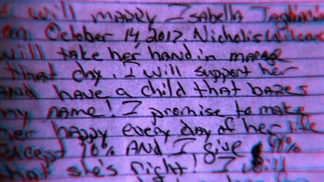 I will marry Isabella
on October 14, 2012. Nicholis
will take her hand in
that day. I will support her
and have a child that bares
my name! I promise to make
her happy every day of her life
except 10% AND I give 9%
that she's right! I will